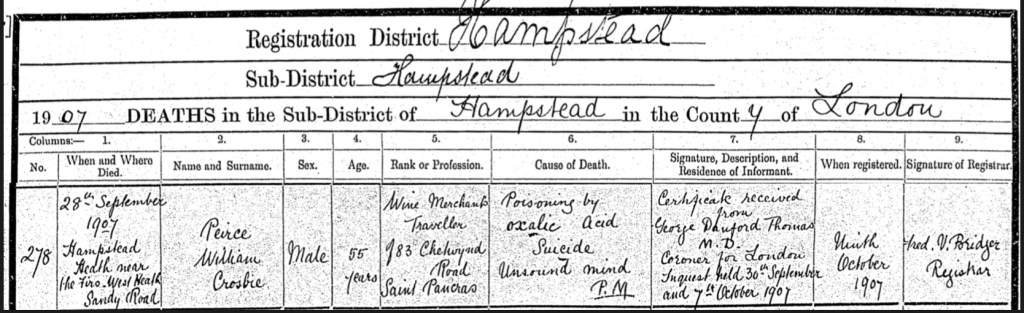 Registration District Hampstead
Sub-District Hampstead
1907 DEATHS in the Sub-District of Hampstead in the County of London
Columns:— 1. 2. 3. 4. 5. 6. 7. 8. 9.
No. When and Where Died. Name and Surname. Sex. Age. Rank or Profession. Cause of Death. Signature, Description, and Residence of Informant. When registered. Signature of Registrar
278
28th September
1907
Hampstead
Heath near
the Firs West Heath
Sandy Road
Peirce
William
Crosbie
Male
55
years
Wine Merchants
Traveller
of 83 Chetwynd
Road
Saint Pancras
Poisoning by
oxalic Acid
Suicide
Unsound mind
P.M
Certificate received
from
George Danford Thomas
M.D.
Coroner for London
Inquest held 30th September
and 7th October 1907
Ninth
October
1907
Fred. V. Bridger
Registrar